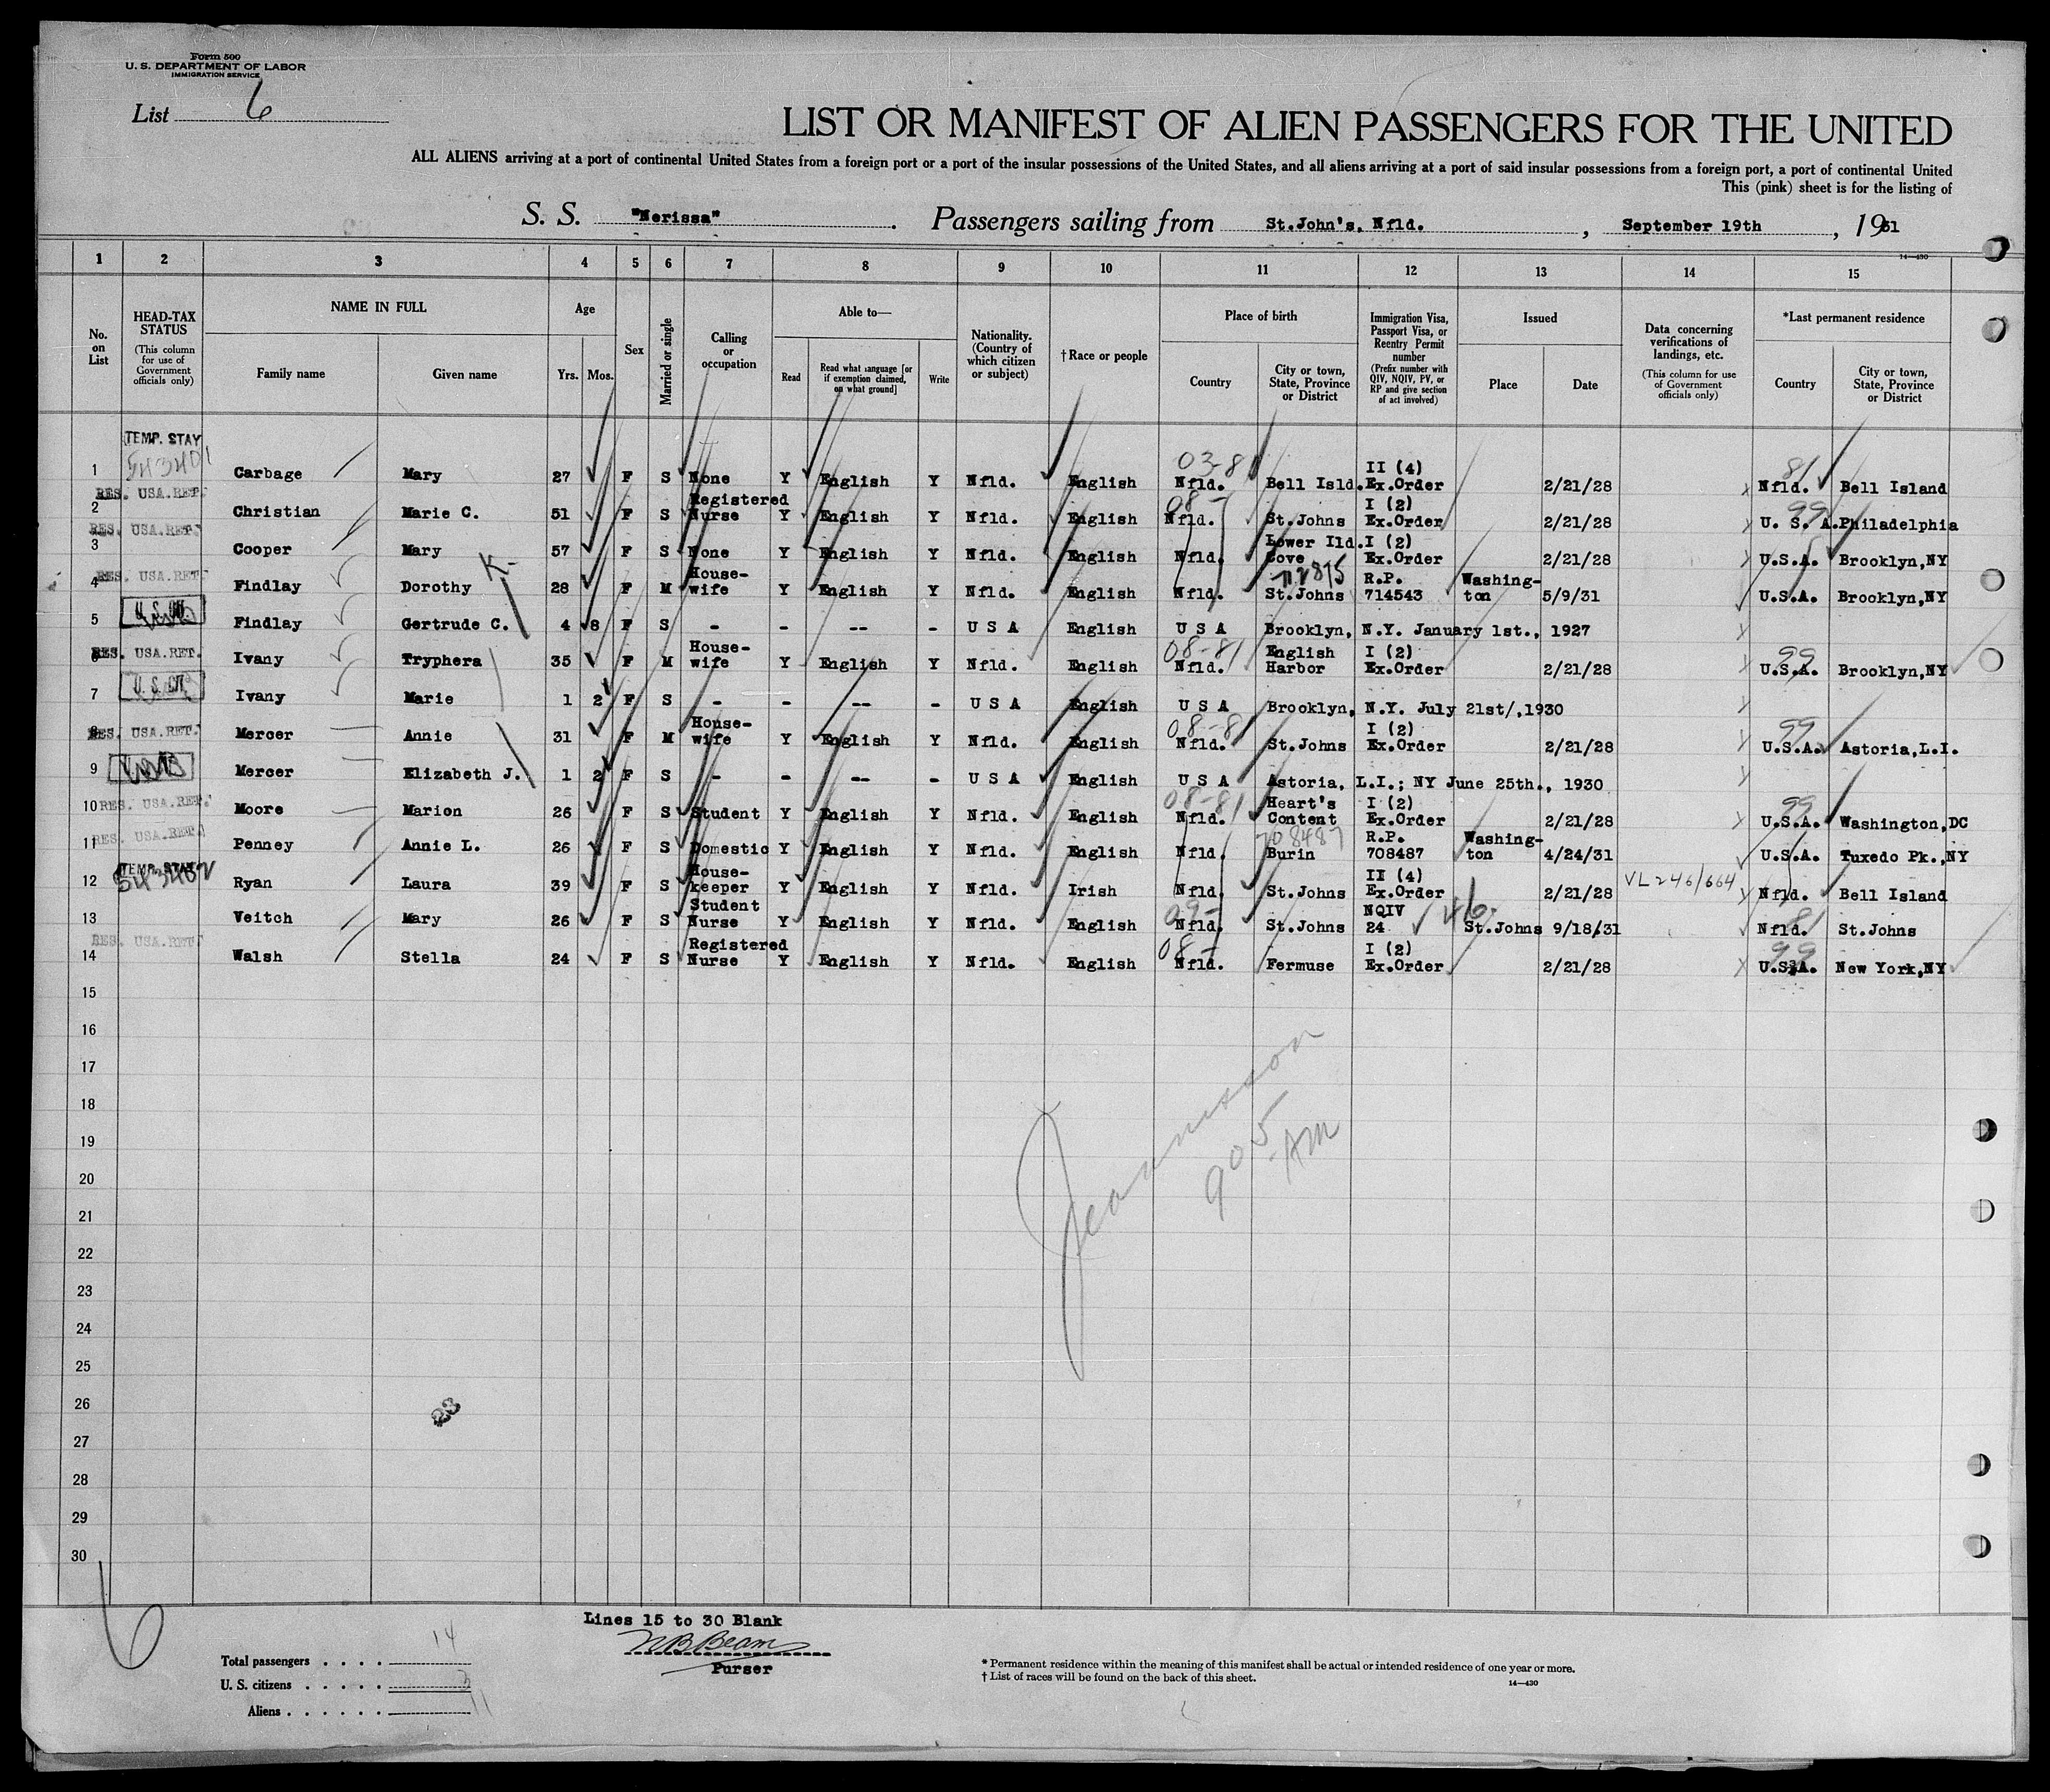 Form 500
U. S. DEPARTMENT OF LABOR
IMMIGRATION SERVICE
List 6
LIST OR MANIFEST OF ALIEN PASSENGERS FOR THE UNITED
ALL ALIENS arriving at a port of continental United States from a foreign port or a port of the insular possessions of the United States, and all aliens arriving at a port of said insular possessions from a foreign port, a port of continental United
This (pink) sheet is for the listing of
S. S. "Nerissa". Passengers sailing from St.John's, Nfld., September 19th, 1931
14—430
1 2 3 4 5 6 7 8 9 10 11 12 13 14 15
No. on List
HEAD-TAX STATUS (This column for use of Government officials only)
NAME IN FULL Family name Given name
Age Yrs. Mos.
Sex
Married or single
Calling or occupation
Able to— Read Read what language [or if exemption claimed, on what ground] Write
Nationality. (Country of which citizen or subject)
†Race or people
Place of birth Country City or town, State, Province or District
Immigration Visa, Passport Visa, or Reentry Permit number (Prefix number with QIV, NQIV, PV, or RP and give section of act involved)
Issued Place Date
Data concerning verifications of landings, etc. (This column for use of Government officials only)
*Last permanent residence Country City or town, State, Province or District
1 TEMP. STAY 543401 Carbage Mary 27 F S None Y English Y Nfld. English 03-81 Nfld. Bell Isld. II (4) Ex.Order 2/21/28 81 Nfld. Bell Island
2 RES. USA.RET. Christian Marie C. 51 F S Registered Nurse Y English Y Nfld. English 08- Nfld. St.Johns I (2) Ex.Order 2/21/28 99 U. S. A. Philadelphia
3 RES. USA.RET. Cooper Mary 57 F S None Y English Y Nfld. English Nfld. Lower Ild. Cove I (2) Ex.Order 2/21/28 U.S.A. Brooklyn,NY
4 RES. USA.RET. Findlay Dorothy K- 28 F M House-wife Y English Y Nfld. English Nfld. St.Johns R.P. 714543 Washing-ton 5/9/31 U.S.A. Brooklyn,NY
5 Findlay Gertrude C. 4 8 F S - - -- - U S A English U S A Brooklyn, N.Y. January 1st., 1927
6 RES. USA.RET. Ivany Tryphera 35 F M House-wife Y English Y Nfld. English 08-81 Nfld. English Harbor I (2) Ex.Order 2/21/28 99 U.S.A. Brooklyn,NY
7 U. S. CIT. Ivany Marie 1 2 F S - - -- - U S A English U S A Brooklyn, N.Y. July 21st/,1930
8 RES. USA.RET. Mercer Annie 31 F M House-wife Y English Y Nfld. English 08-81 Nfld. St.Johns I (2) Ex.Order 2/21/28 99 U.S.A. Astoria,L.I.
9 Mercer Elizabeth J. 1 2 F S - - -- - U S A English U S A Astoria, L.I.; NY June 25th., 1930
10 RES. USA.RET. Moore Marion 26 F S Student Y English Y Nfld. English 08-81 Nfld. Heart's Content I (2) Ex.Order 2/21/28 99 U.S.A. Washington,DC
11 RES. USA.RET. Penney Annie L. 26 F S Domestic Y English Y Nfld. English Nfld. 708487 Burin R.P. 708487 Washing-ton 4/24/31 U.S.A. Tuxedo Pk.,NY
12 TEMP. STAY 543402 Ryan Laura 39 F S House-keeper Y English Y Nfld. Irish Nfld. St.Johns II (4) Ex.Order 2/21/28 VL 246/664 Nfld. Bell Island
13 Veitch Mary 26 F S Student Nurse Y English Y Nfld. English 09- Nfld. St.Johns NQIV 24 St.Johns 9/18/31 81 Nfld. St.Johns
14 RES. USA.RET. Walsh Stella 24 F S Registered Nurse Y English Y Nfld. English 08- Nfld. Fermuse I (2) Ex.Order 2/21/28 99 U.S.A. New York,NY
15
16
17
18
19
20
21
22
23
24
25
26
27
28
29
30
905
AM
23
6
Lines 15 to 30 Blank
Purser
Total passengers . . . . 14
U. S. citizens . . . . . 3
Aliens . . . . . . 11
* Permanent residence within the meaning of this manifest shall be actual or intended residence of one year or more.
† List of races will be found on the back of this sheet.
14—430